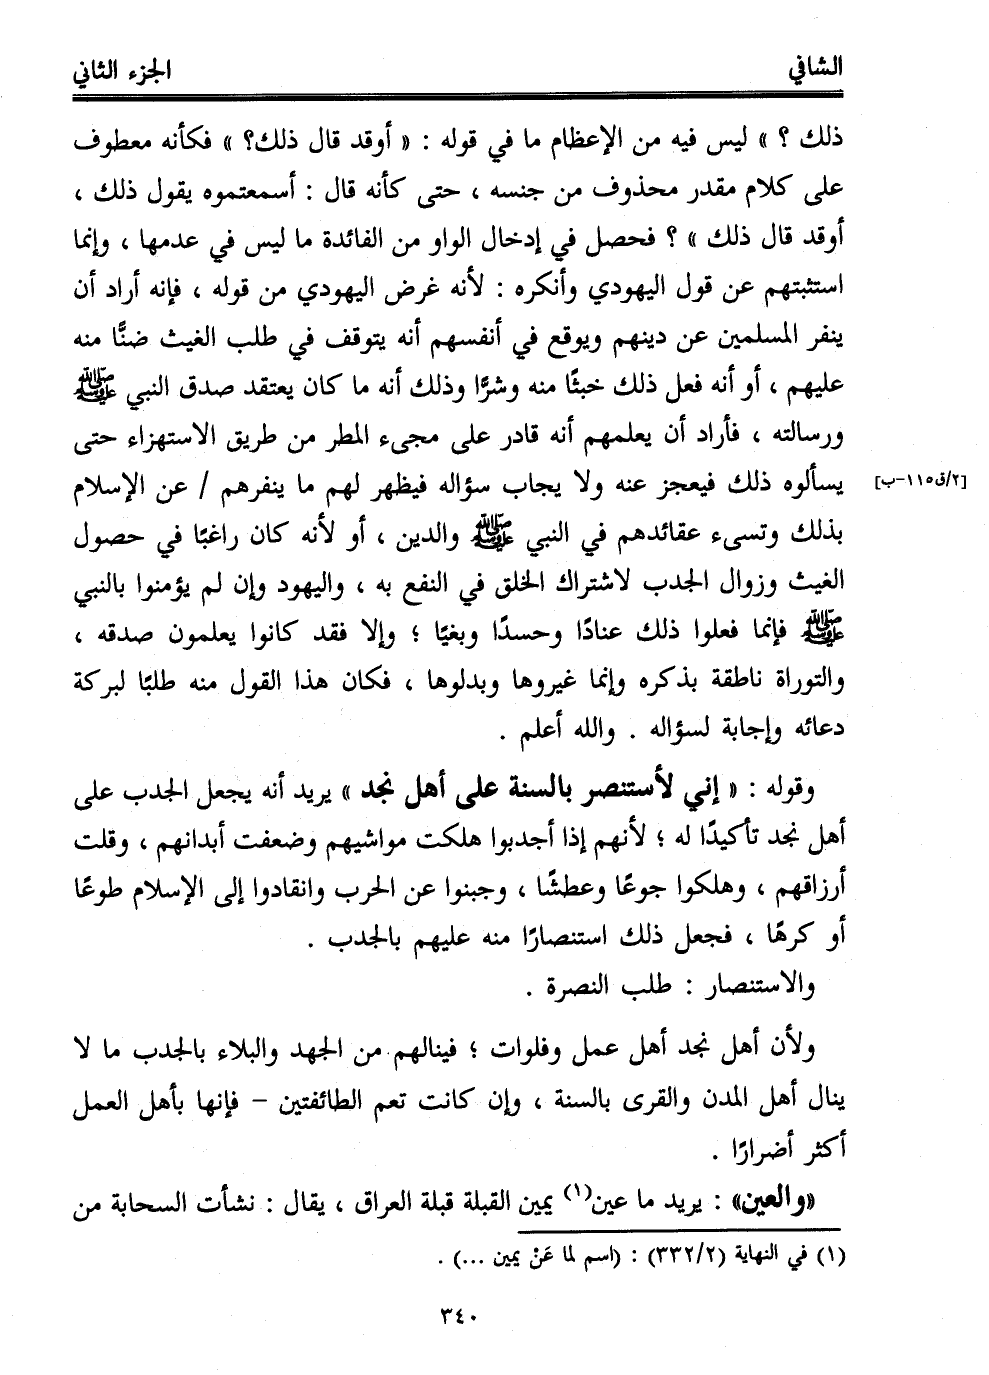 الشافي
الجزء الثاني
ذلك ؟ » ليس فيه من الإعظام ما في قوله : « أوقد قال ذلك؟ » فكأنه معطوف
على كلام مقدر محذوف من جنسه ، حتى كأنه قال : أسمعتموه يقول ذلك ،
أوقد قال ذلك » ؟ فحصل في إدخال الواو من الفائدة ما ليس في عدمها ، وإنما
استثبتهم عن قول اليهودي وأنكره : لأنه غرض اليهودي من قوله ، فإنه أراد أن
ينفر المسلمين عن دينهم ويوقع في أنفسهم أنه يتوقف في طلب الغيث ضنًّا منه
عليهم ، أو أنه فعل ذلك خبثًا منه وشرًّا وذلك أنه ما كان يعتقد صدق النبي ﷺ
ورسالته ، فأراد أن يعلمهم أنه قادر على مجىء المطر من طريق الاستهزاء حتى
يسألوه ذلك فيعجز عنه ولا يجاب سؤاله فيظهر لهم ما ينفرهم / عن الإسلام
[٢/ق١١٥-ب]
بذلك وتسىء عقائدهم في النبي ﷺ والدين ، أو لأنه كان راغبًا في حصول
الغيث وزوال الجدب لاشتراك الخلق في النفع به ، واليهود وإن لم يؤمنوا بالنبي
ﷺ فإنما فعلوا ذلك عنادًا وحسدًا وبغيًا ؛ وإلا فقد كانوا يعلمون صدقه ،
والتوراة ناطقة بذكره وإنما غيروها وبدلوها ، فكان هذا القول منه طلبًا لبركة
دعائه وإجابة لسؤاله . والله أعلم .
وقوله : « إني لأستنصر بالسنة على أهل نجد » يريد أنه يجعل الجدب على
أهل نجد تأكيدًا له ؛ لأنهم إذا أجدبوا هلكت مواشيهم وضعفت أبدانهم ، وقلت
أرزاقهم ، وهلكوا جوعًا وعطشًا ، وجبنوا عن الحرب وانقادوا إلى الإسلام طوعًا
أو كرهًا ، فجعل ذلك استنصارًا منه عليهم بالجدب .
والاستنصار : طلب النصرة .
ولأن أهل نجد أهل عمل وفلوات ؛ فينالهم من الجهد والبلاء بالجدب ما لا
ينال أهل المدن والقرى بالسنة ، وإن كانت تعم الطائفتين – فإنها بأهل العمل
أكثر أضرارًا .
«والعين» : يريد ما عين(١) يمين القبلة قبلة العراق ، يقال : نشأت السحابة من
(١) في النهاية (٣٣٢/٢) : (اسم لما عَنْ يمين ...) .
٣٤٠